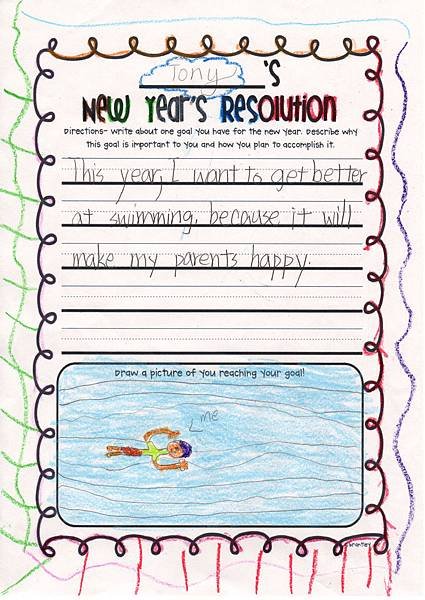 Tony's
New Year's Resolution
Directions- Write about one goal you have for the new year. Describe why
this goal is important to you and how you plan to accomplish it.
This year, I want to get better
at swimming, because it will
make my parents happy.
Draw a picture of you reaching your goal!
me